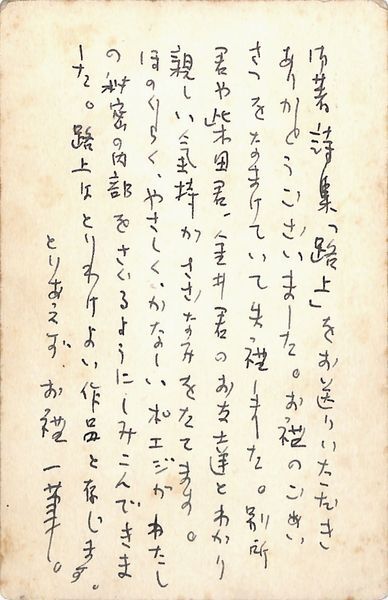 御著詩集「路上」をお送りいただき
ありがとうございました。お禮のごあい
さつをなまけていて失禮しました。別所
君や柴田君、金井君のお友達とわかり
親しい気持がさざなみをたてます。
ほのぐらく、やさしく、かなしいポエジがわたし
の秘密の内部をさぐるようにしみこんできま
した。路上はとりわけよい作品と存じます。
とりあえずお禮一筆。